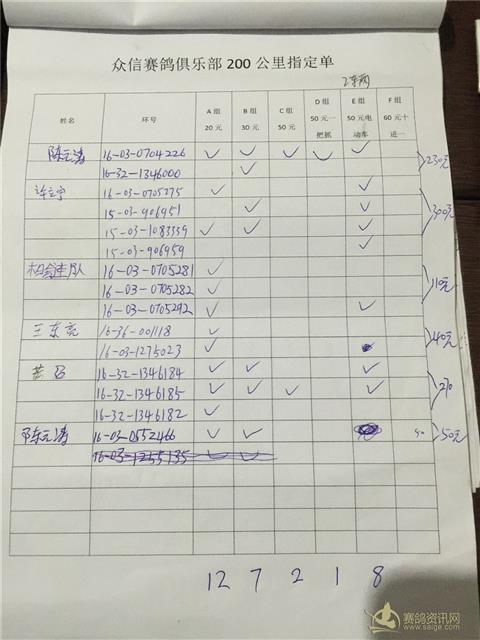 众信赛鸽俱乐部 200 公里指定单
姓名 环号 A 组 20 元 B 组 30 元 C 组 50 元 D 组 50 元一把抓 E 组 50 元电动车 F 组 60 元十进一
陈元涛 16-03-0704226 ✓ ✓ ✓ ✓ ✓
16-32-1346000 ✓ 230元
16-03-0705275 ✓ ✓
15-03-906951 ✓ ✓
15-03-1083339 ✓ ✓ ✓ 300元
15-03-906959 ✓
16-03-0705281 ✓
16-03-0705282 ✓ 110元
16-03-0705292 ✓ ✓
王东亮 16-36-001118 ✓
16-03-1275023 ✓ 40元
16-32-1346184 ✓ ✓ ✓
16-32-1346185 ✓ ✓ ✓ ✓ 270
16-32-1346182 ✓
陈元涛 16-03-0552466 ✓ ✓ 50 50元
16-03-1255135 ✓ ✓
12 7 2 1 8
赛鸽资讯网
www.saige.com